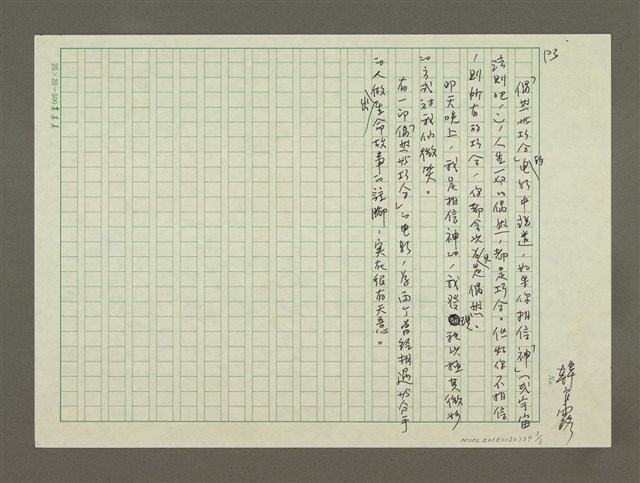 123
「偶然與巧合」的電影中說道，如果你相信「神」（或宇宙
法則吧，），人生一切的偶然，都是巧合。但如你不相信
，則所有的巧合，你都會以為只是偶然。
昨天晚上，我是相信神的，我發現祂以極其微妙
的方式對我們微笑。
有一部「偶然與巧合」的電影，為兩個曾經相遇與分手
的人做出生命故事的註腳，實在很有天意。
25×20=500
NMTL20180120399 2/2